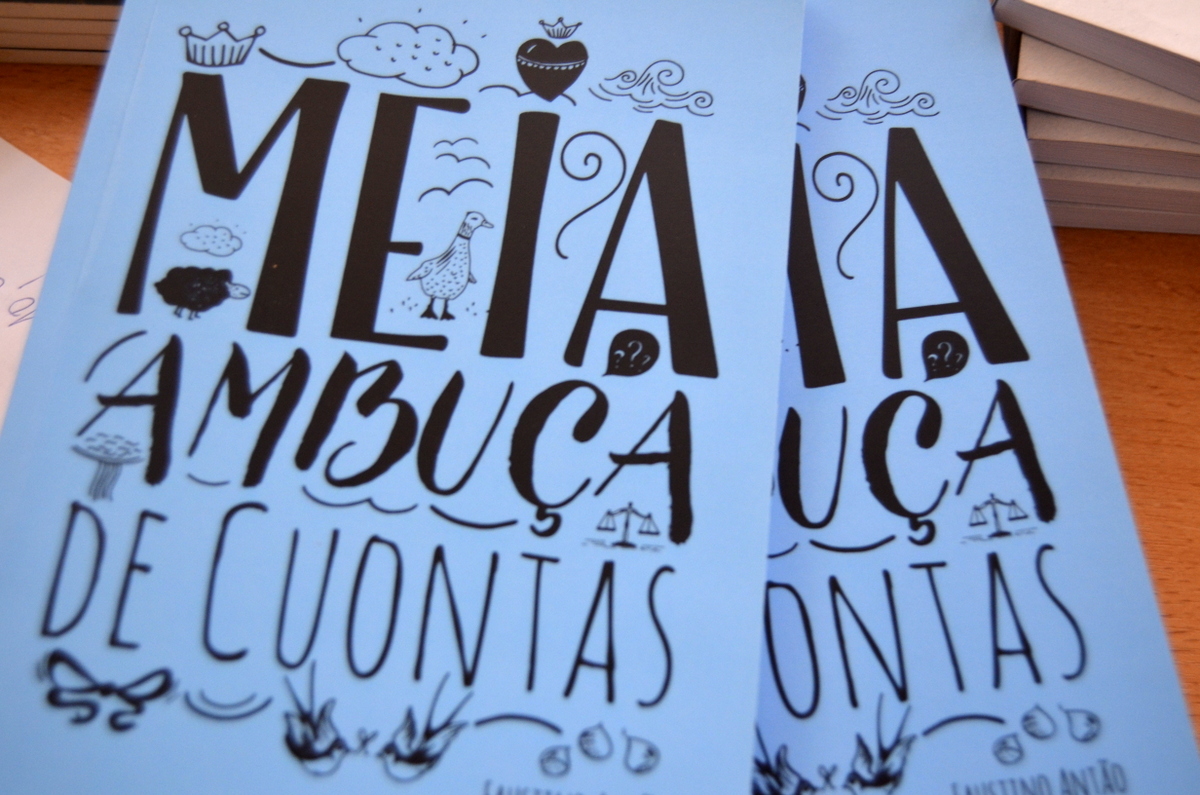 MEIA
AMBUÇA
DE CUONTAS
FAUSTINO ANTÃO
IA
UÇA
ONTAS
FAUSTINO ANTÃO